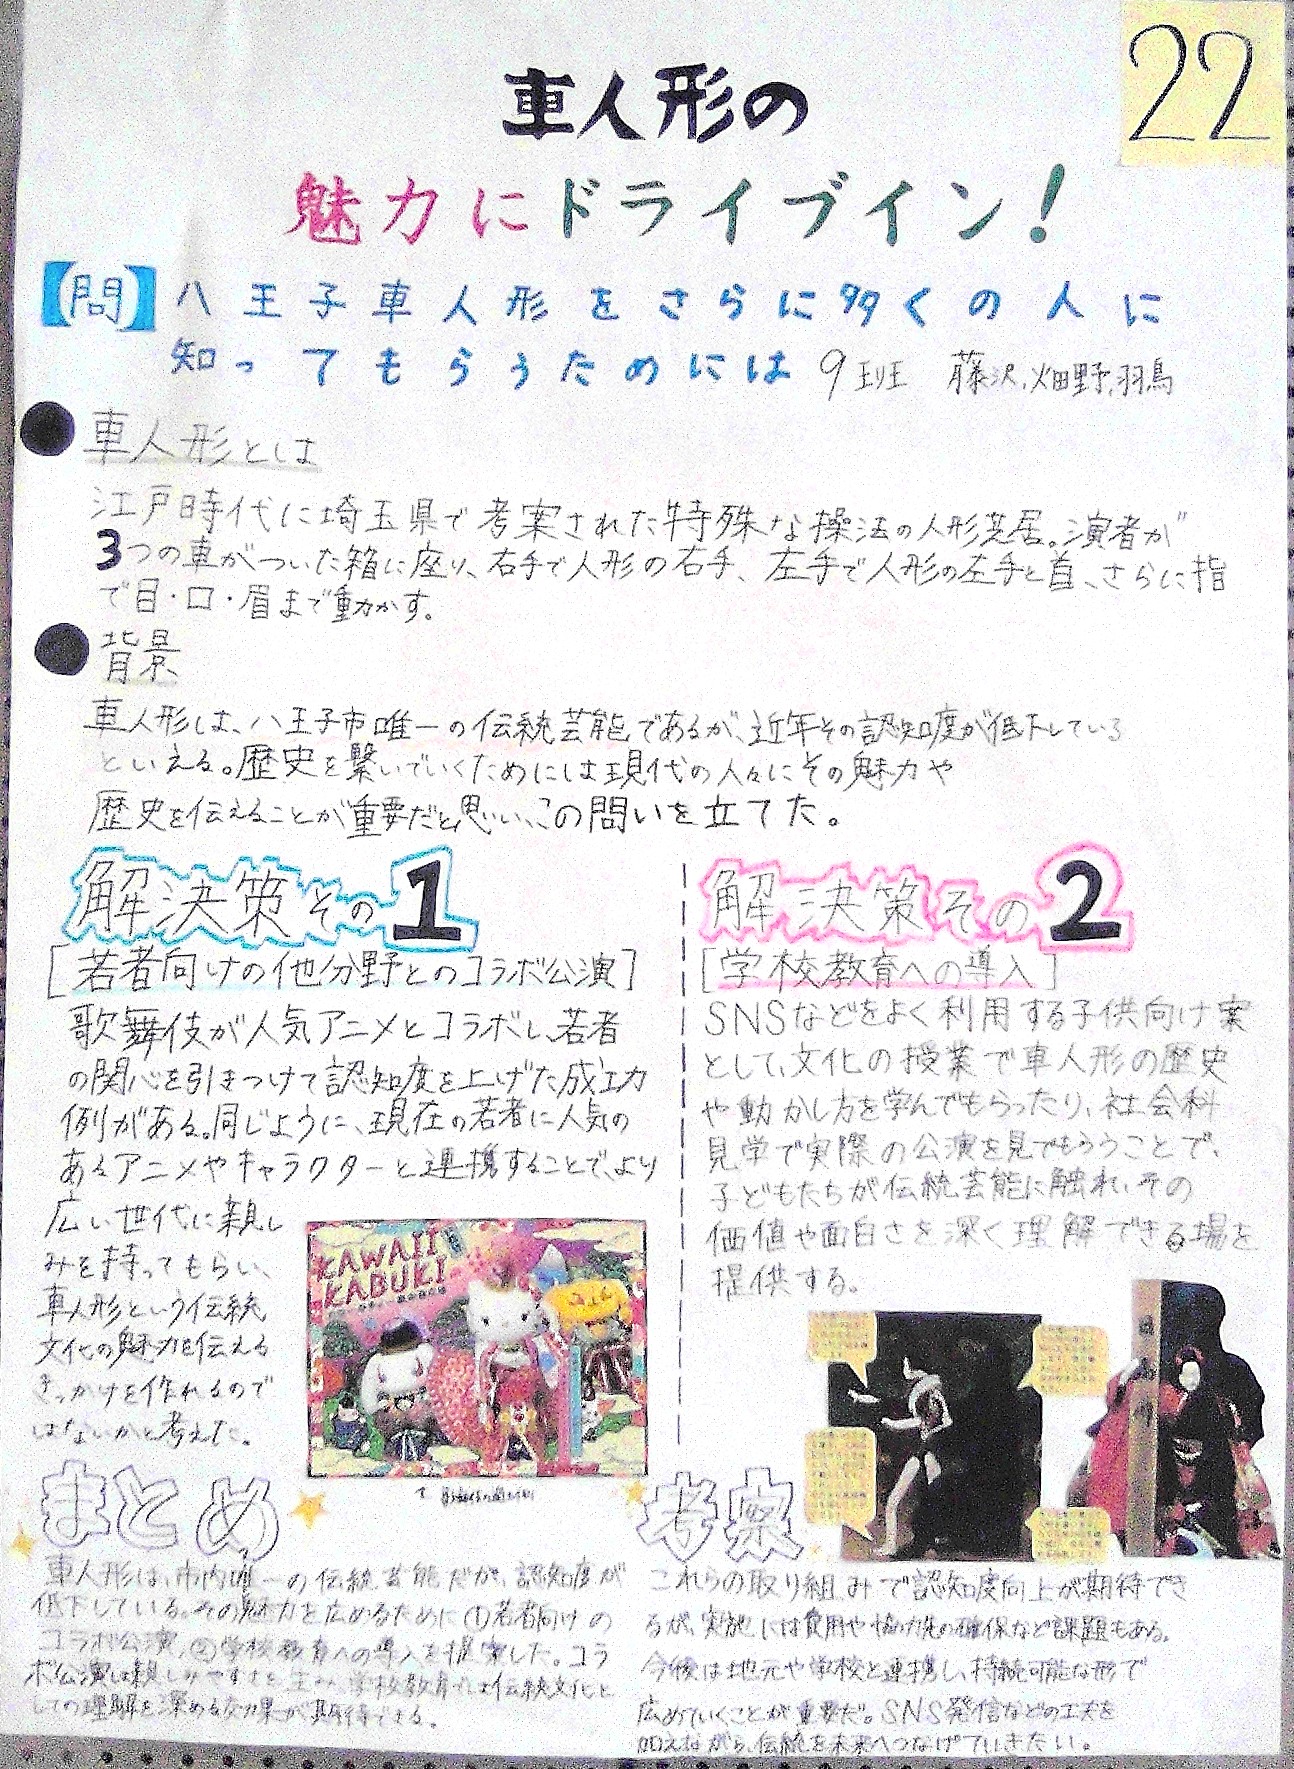 22
車人形の
魅力にドライブイン!
【問】八王子車人形をさらに多くの人に
知ってもらうためには 9班 藤沢、畑野、羽鳥
車人形とは
江戸時代に埼玉県で考案された特殊な操法の人形芝居。演者が
3つの車がついた箱に座り、右手で人形の右手、左手で人形の左手と首、さらに指
で目・口・眉まで動かす。
背景
車人形は、八王子市唯一の伝統芸能であるが、近年その認知度が低下している
といえる。歴史を繋いでいくためには現代の人々にその魅力や
歴史を伝えることが重要だと思い、この問いを立てた。
解決策その1
[若者向けの他分野とのコラボ公演]
歌舞伎が人気アニメとコラボし、若者
の関心を引きつけて認知度を上げた成功
例がある。同じように、現在の若者に人気の
あるアニメやキャラクターと連携することで、より
広い世代に親し
みを持ってもらい、
車人形という伝統
文化の魅力を伝える
きっかけを作れるので
はないかと考えた。
KAWAII
KABUKI
解決策その2
[学校教育への導入]
SNSなどをよく利用する子供向け案
として、文化の授業で車人形の歴史
や動かし方を学んでもらったり、社会科
見学で実際の公演を見てもらうことで、
子どもたちが伝統芸能に触れ、その
価値や面白さを深く理解できる場を
提供する。
まとめ
車人形は、市内唯一の伝統芸能だが、認知度が
低下している。その魅力を広めるために①若者向けの
コラボ公演、②学校教育への導入を提案した。コラ
ボ公演は親しみやすさを生み、学校教育では伝統文化と
しての理解を深める効果が期待できる。
考察
これらの取り組みで認知度向上が期待でき
るが、実施には費用や協力先の確保など課題もある。
今後は地元や学校と連携し、持続可能な形で
広めていくことが重要だ。SNS発信などの工夫を
加えながら、伝統を未来へつなげていきたい。